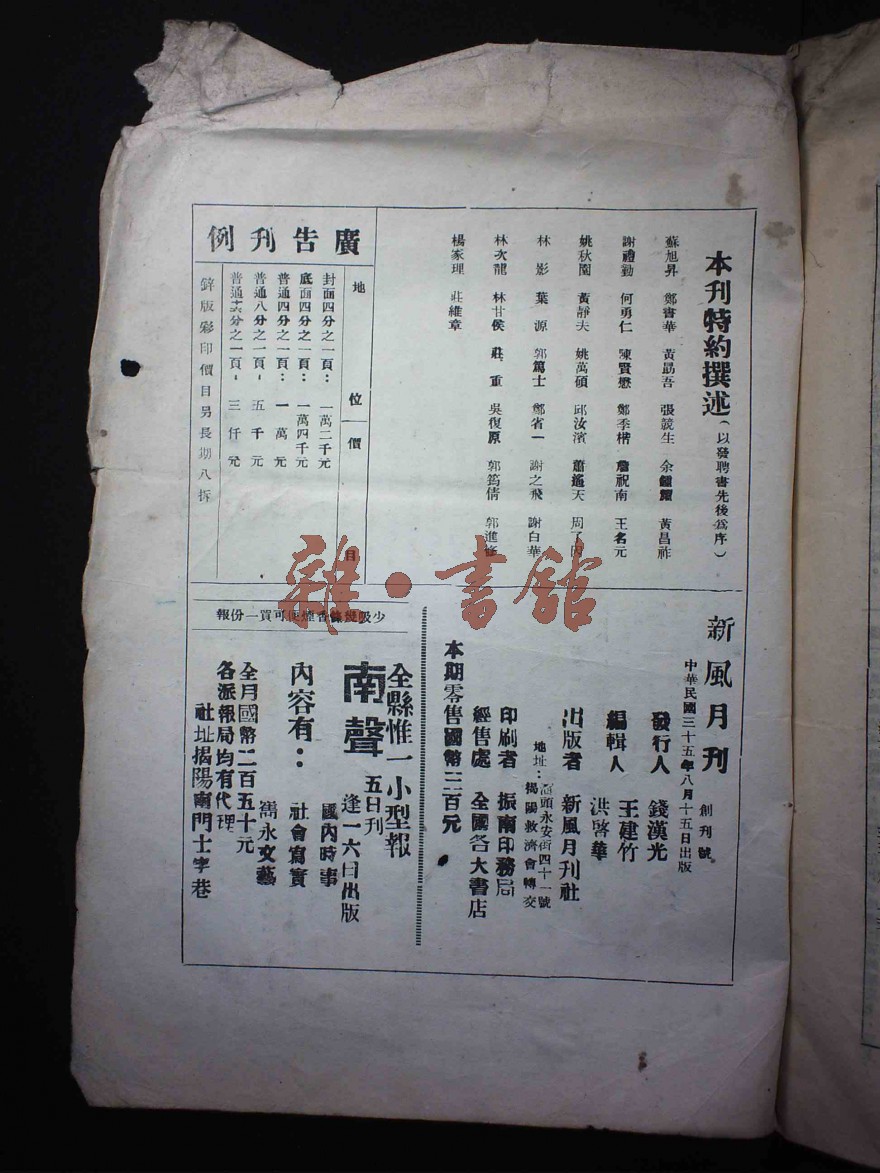 本刊特約撰述(以發聘書先後爲序)
蘇旭昇 鄭書華 黃勗吾 張競生 余 黃昌祚
謝禮勤 何勇仁 陳賢懋 鄭季楷 詹祝南 王名元
姚秋園 黃靜夫 姚萬碩 邱汝濱 蕭遙天 周
林影 葉源 郭篤士 鄭省一 謝之飛 謝白華
林次龍 林甘侯 莊重 吳復原 郭筠倩 郭進修
楊家理 莊維章
廣告刊例
地位 價目
封面四分之一頁: 一萬二千元
底面四分之一頁: 一萬四千元
普通四分之一頁: 一萬元
普通八分之一頁- 五千元
普通十六分之一頁- 三仟元
鋅版彩印價目另長期八折
新風月刊 創刊號
中華民國三十五年八月十五日出版
發行人 錢漢光
編輯人 王建竹
洪啓華
出版者 新風月刊社
地址:汕頭永安街四十一號
揭陽救濟會轉交
印刷者 振南印務局
經售處 全國各大書店
本期零售國幣二百元
少吸幾條香煙便可買一份報
全縣惟一小型報
南聲 五日刊
逢一六日出版
內容有:
國內時事
社會寫實
雋永文藝
全月國幣二百五十元
各派報局均有代理
社址揭陽南門士字巷
雜·書館